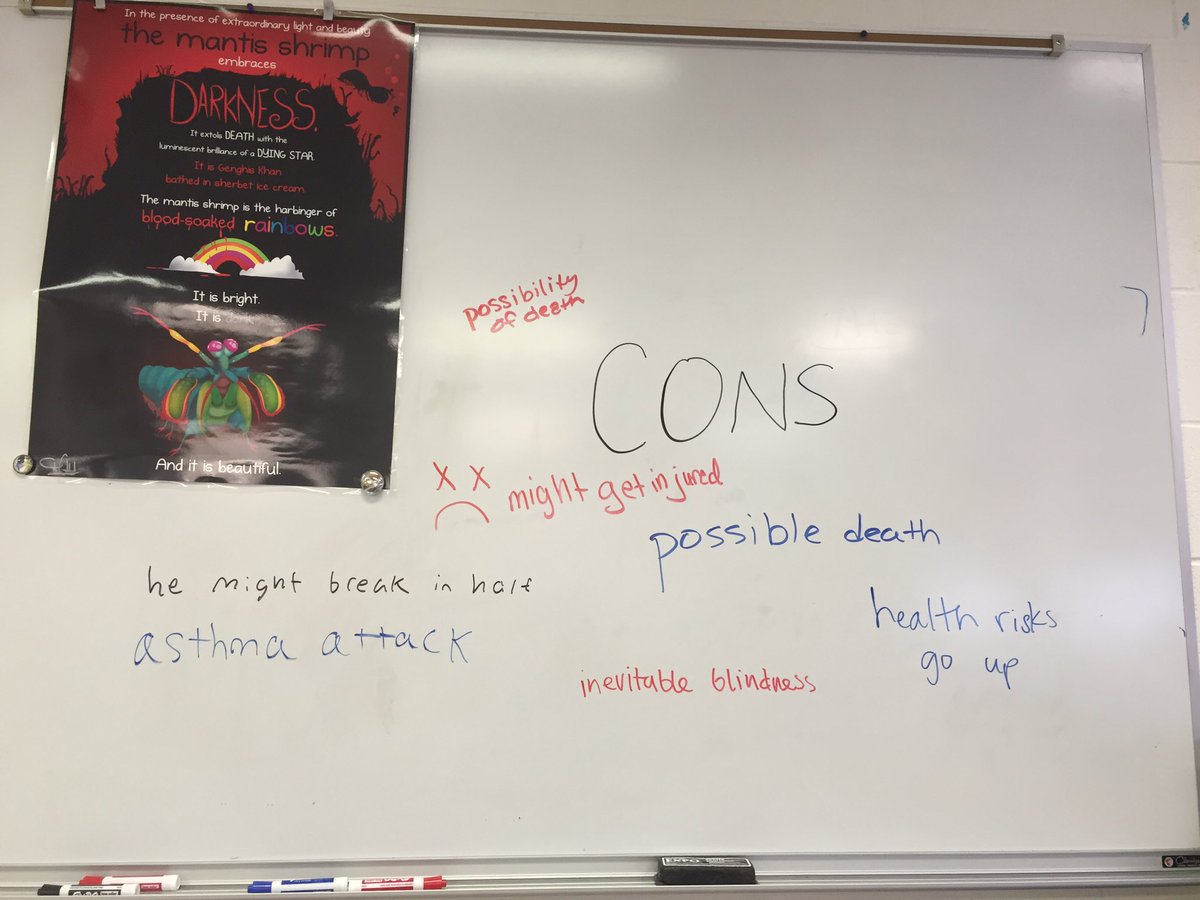 In the presence of extraordinary light and beauty
the mantis shrimp
embraces
DARKNESS.
It extols DEATH with the
luminescent brilliance of a DYING STAR.
It is Genghis Khan
bathed in sherbet ice cream.
The mantis shrimp is the harbinger of
blood-soaked rainbows.
It is bright.
It is dark.
And it is beautiful.
possibility
of death
CONS
X X
might get injured
possible death
he might break in half
asthma attack
health risks
go up
inevitable blindness
EXPO